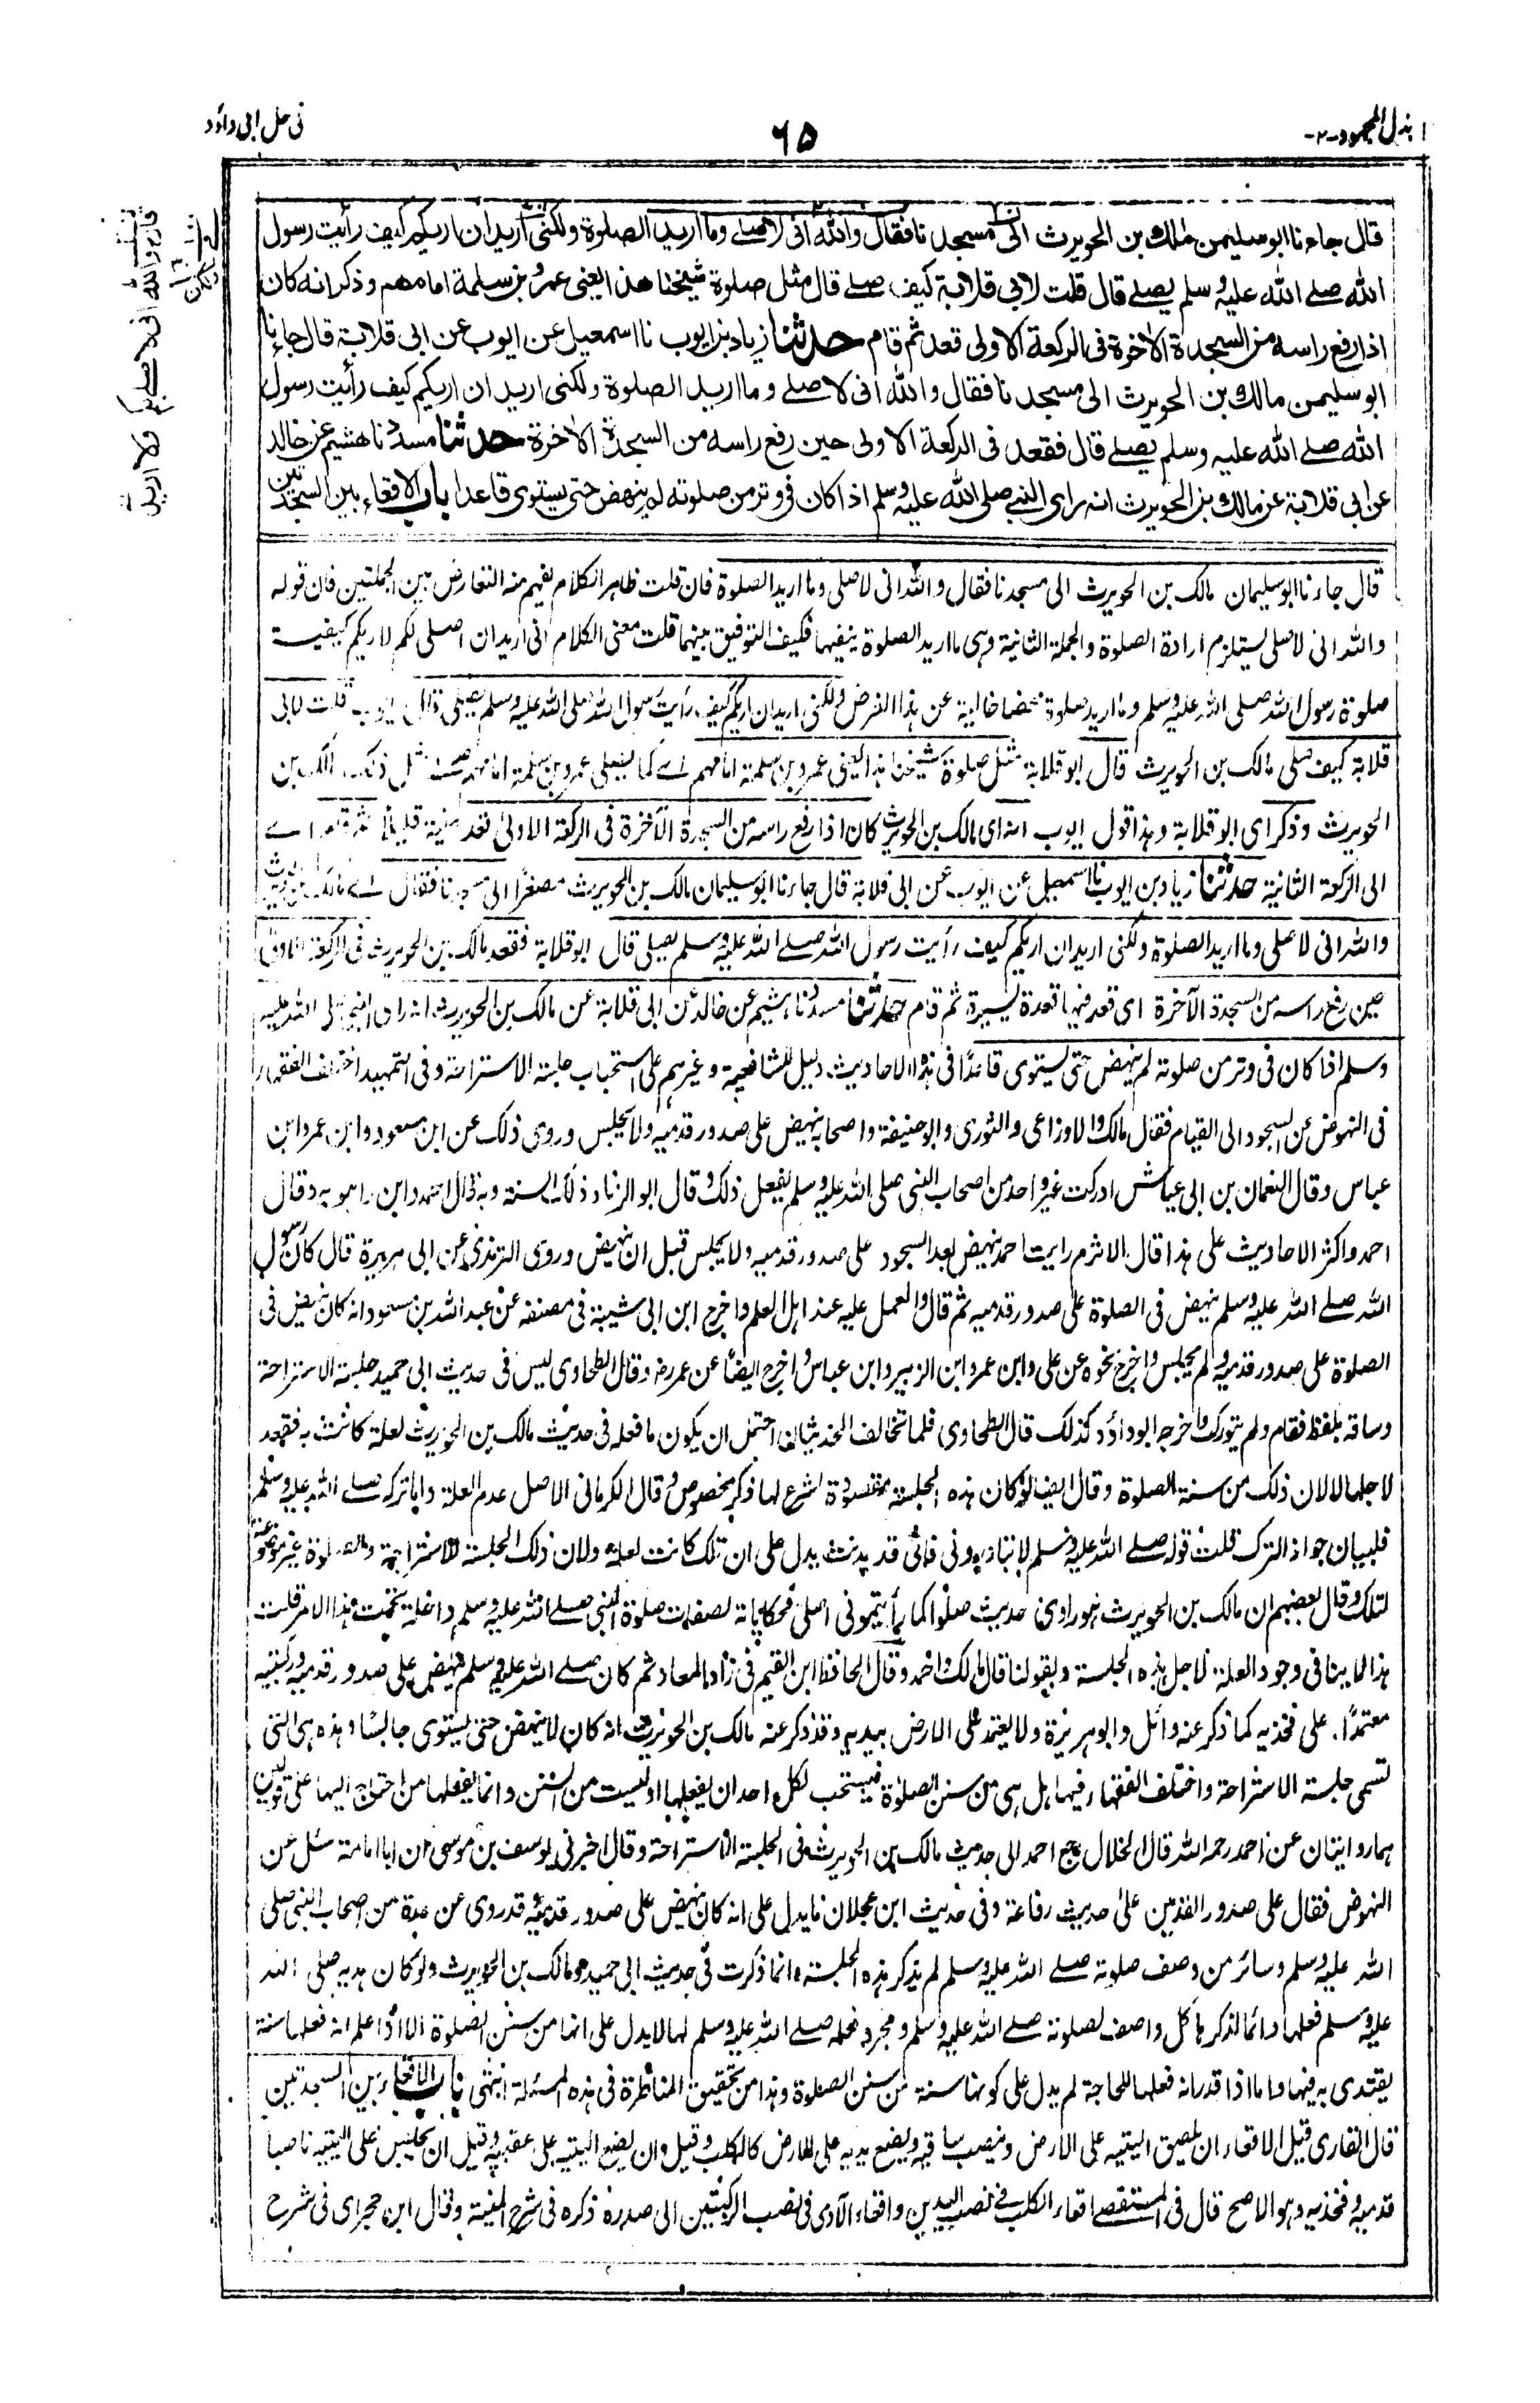 بذل المجهود -٢-
٦٥
فی حل ابی داؤد
قال جاءنا ابو سلیمن مٰلك بن الحویرث الی مسجدنا فقال والله انی لاصلے وما ارید الصلوة ولکنی ارید ان اریکم کیف رأیت رسول
الله صلے الله علیه وسلم یصلے قال قلت لابی قلابة کیف صلے قال مثل صلوة شیخنا هذا یعنی عمرو بن سلمة امامهم وذکر انه کان
اذا رفع راسه من السجدة الاٰخرة فی الرکعة الاولی قعد ثم قام حدثنا زیاد بن ایوب نا اسمعیل عن ایوب عن ابی قلابة قال جاءنا
ابو سلیمن مالك بن الحویرث الی مسجدنا فقال والله انی لاصلے وما ارید الصلوة ولکنی ارید ان اریکم کیف رأیت رسول
الله صلے الله علیه وسلم یصلے قال فقعد فی الرکعة الاولی حین رفع راسه من السجدة الاٰخرة حدثنا مسدد نا هشیم عن خالد
عن ابی قلابة عن مالك بن الحویرث انه رای النبی صلی الله علیه وسلم اذا کان فی وتر من صلوته لم ینهض حتی یستوی قاعدا باب الاقعاء بین السجدتین
قال جاءنا ابو سلیمان مالک بن الحویرث الی مسجدنا فقال والله انی لاصلی وما ارید الصلوة فان قلت ظاهر الکلام یفهم منه التعارض بین الجملتین فان قوله
والله انی لاصلی یستلزم ارادة الصلوة والجملة الثانیة وهی ما ارید الصلوة ینفیها فکیف التوفیق بینهما قلت معنی الکلام انی ارید ان اصلی لکم لاریکم کیفیة
صلوة رسول الله صلی الله علیه وسلم وما ارید صلوة محضا خالیة عن هذا الغرض ولکنی ارید ان اریکم کیف رأیت رسول الله صلی الله علیه وسلم یصلی قال ایوب قلت لابی
قلابة کیف صلی مالک بن الحویرث قال ابو قلابة مثل صلوة شیخنا هذا یعنی عمرو بن سلمة امامهم اے کما یصلی عمرو بن سلمة امامهم مالک بن
الحویرث وذکر ای ابو قلابة وهذا قول ایوب انه ای مالک بن الحویرث کان اذا رفع راسه من السجدة الآخرة فی الرکعة الاولی قعد قلیلا ثم قام اے
الی الرکعة الثانیة حدثنا زیاد بن ایوب نا اسمعیل عن ایوب عن ابی قلابة قال جاءنا ابو سلیمان مالک بن الحویرث مصغرًا الی مسجدنا فقال اے مالک بن الحویرث
والله انی لاصلی وما ارید الصلوة ولکنی ارید ان اریکم کیف رأیت رسول الله صلے الله علیه وسلم یصلی قال ابو قلابة فقعد مالک بن الحویرث فی الرکعة الاولی
حین رفع راسه من السجدة الآخرة ای قعد فیها قعدة یسیرة ثم قام حدثنا مسدد نا هشیم عن خالد عن ابی قلابة عن مالک بن الحویرث انه رای النبی صلی الله علیه
وسلم اذا کان فی وتر من صلوته لم ینهض حتی یستوی قاعدًا فی هذه الاحادیث دلیل للشافعیة وغیرهم علی استحباب جلسة الاستراحة وفی التمهید اختلف الفقهاء
فی النهوض عن السجود الی القیام فقال مالک والاوزاعی والثوری وابو حنیفة واصحابه ینهض علی صدور قدمیه ولا یجلس وروی ذلک عن ابن مسعود وابن عمر وابن
عباس وقال النعمان بن ابی عیاش ادرکت غیر واحد من اصحاب النبی صلی الله علیه وسلم یفعل ذلک وقال ابو الزناد ذلک السنة وبه قال احمد وابن راهویه وقال
احمد واکثر الاحادیث علی هذا قال الاثرم رایت احمد ینهض بعد السجود علی صدور قدمیه ولا یجلس قبل ان ینهض وروی الترمذی عن ابی هریرة قال کان رسول
الله صلے الله علیه وسلم ینهض فی الصلوة علی صدور قدمیه ثم قال والعمل علیه عند اهل العلم واخرج ابن ابی شیبة فی مصنفه عن عبد الله بن مسعود انه کان ینهض فی
الصلوة علی صدور قدمیه ولم یجلس واخرج نحوه عن علی وابن عمر وابن الزبیر وابن عباس واخرج ایضًا عن عمر رض وقال الطحاوی لیس فی حدیث ابی حمید جلسة الاستراحة
وساقه بلفظ فقام ولم یتورک واخرجه ابو داؤد کذلک قال الطحاوی فلما تخالف الحدیثان احتمل ان یکون ما فعله فی حدیث مالک بن الحویرث لعلة کانت به فقعد
لاجلها لا لان ذلک من سنة الصلوة وقال ایضا لو کان هذه الجلسة مقصودة لشرع لها ذکر مخصوص وقال الکرمانی الاصل عدم العلة واما ترکه صلے الله علیه وسلم
فلبیان جواز الترک قلت قوله صلے الله علیه وسلم لا تبادرونی فانی قد بدنت یدل علی ان تلک کانت لعلة ولان ذلک الجلسة للاستراحة والصلوة غیر موضوعة
لتلک وقال بعضهم ان مالک بن الحویرث هو راوی حدیث صلوا کما رأیتمونی اصلی فحکایاته لصفات صلوة النبی صلے الله علیه وسلم داخلة تحت هذا الامر قلت
هذا لا ینافی وجود العلة لاجل هذه الجلسة وبقولنا قال مالک واحمد وقال الحافظ ابن القیم فی زاد المعاد ثم کان صلے الله علیه وسلم ینهض علی صدور قدمیه ورکبتیه
معتمدًا علی فخذیه کما ذکر عنه وائل وابو هریرة ولا یعتمد علی الارض بیدیه وقد ذکر عنه مالک بن الحویرث انه کان لا ینهض حتی یستوی جالسًا وهذه هی التی
تسمی جلسة الاستراحة واختلف الفقهاء فیها هل هی من سنن الصلوة فیستحب لکل احد ان یفعلها او لیست من السنن وانما یفعلها من احتاج الیها علی قولین
هما روایتان عن احمد رحمه الله قال الخلال رجع احمد الی حدیث مالک بن الحویرث فی الجلسة الاستراحة وقال اخبرنی یوسف بن موسی ان ابا امامة سئل عن
النهوض فقال علی صدور القدمین علی حدیث رفاعة وفی حدیث ابن عجلان ما یدل علی انه کان ینهض علی صدور قدمیه وقد روی عن عدة من اصحاب النبی صلی
الله علیه وسلم وسائر من وصف صلوته صلے الله علیه وسلم لم یذکر هذه الجلسة وانما ذکرت فی حدیث ابی حمید ومالک بن الحویرث ولو کان هدیه صلی الله
علیه وسلم فعلها دائما لذکرها کل واصف لصلوته صلے الله علیه وسلم ومجرد فعله صلے الله علیه وسلم لها لا یدل علی انها من سنن الصلوة الا اذا علم انه فعلها سنة
یقتدی به فیها واما اذا قدر انه فعلها للحاجة لم یدل علی کونها سنة من سنن الصلوة وهذا من تحقیق المناظرة فی هذه المسئلة انتهی باب الاقعاء بین السجدتین
قال القاری قیل الاقعاء ان یلصق الیتیه علی الارض وینصب ساقیه ویضع یدیه علی الارض کالکلب وقیل وان یضع الیتیه علی عقبیه وقیل ان یجلس علی الیتیه ناصبا
قدمیه وفخذیه وهو الاصح قال فی المستقصے اقعاء الکلب فی نصب الیدین واقعاء الآدمی فی نصب الرکبتین الی صدره ذکره فی شرح المنیة وقال ابن حجر ای فی شرح
والله انی لاصلے
ولا ارید
ولکن